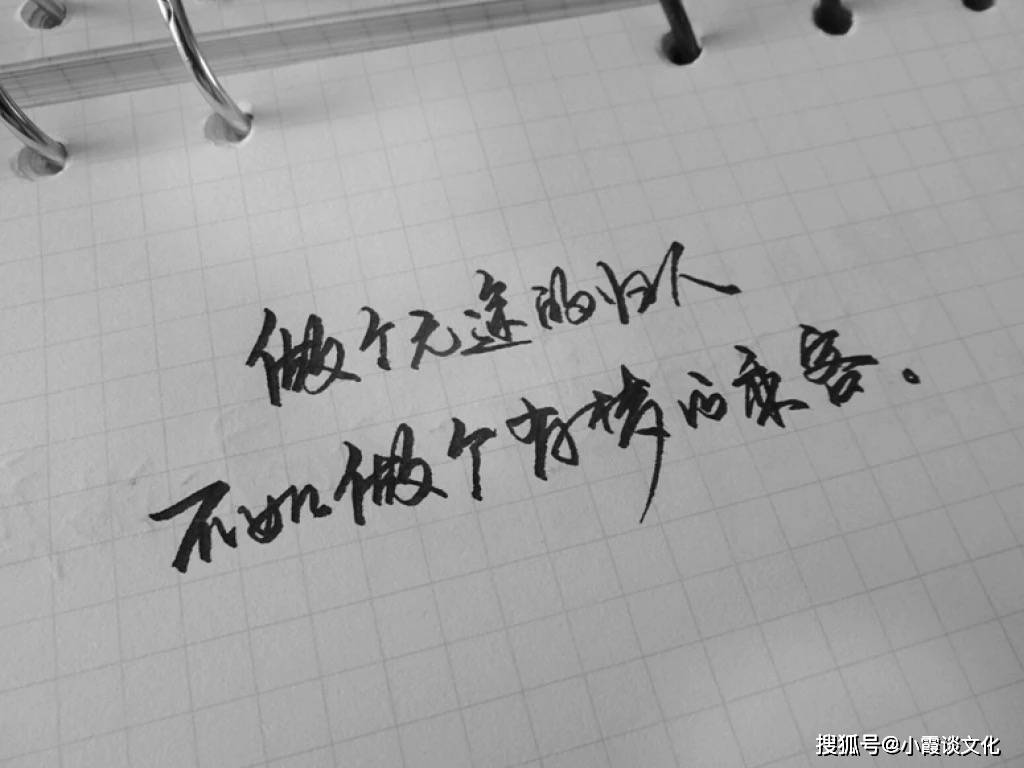 做个无途的归人
不如做个有的乘客。
搜狐号@小霞谈文化